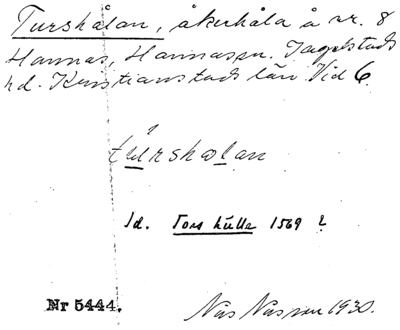 Turshålan, åkerhåla å nr. 8
Hannas, Hannas sn. Ingelstads
hd. Kristianstads län. Vid 6.
túrshålan
Jd. Tors kulle 1569 ?
Nr 5444.
Nils Nilsson 1930.